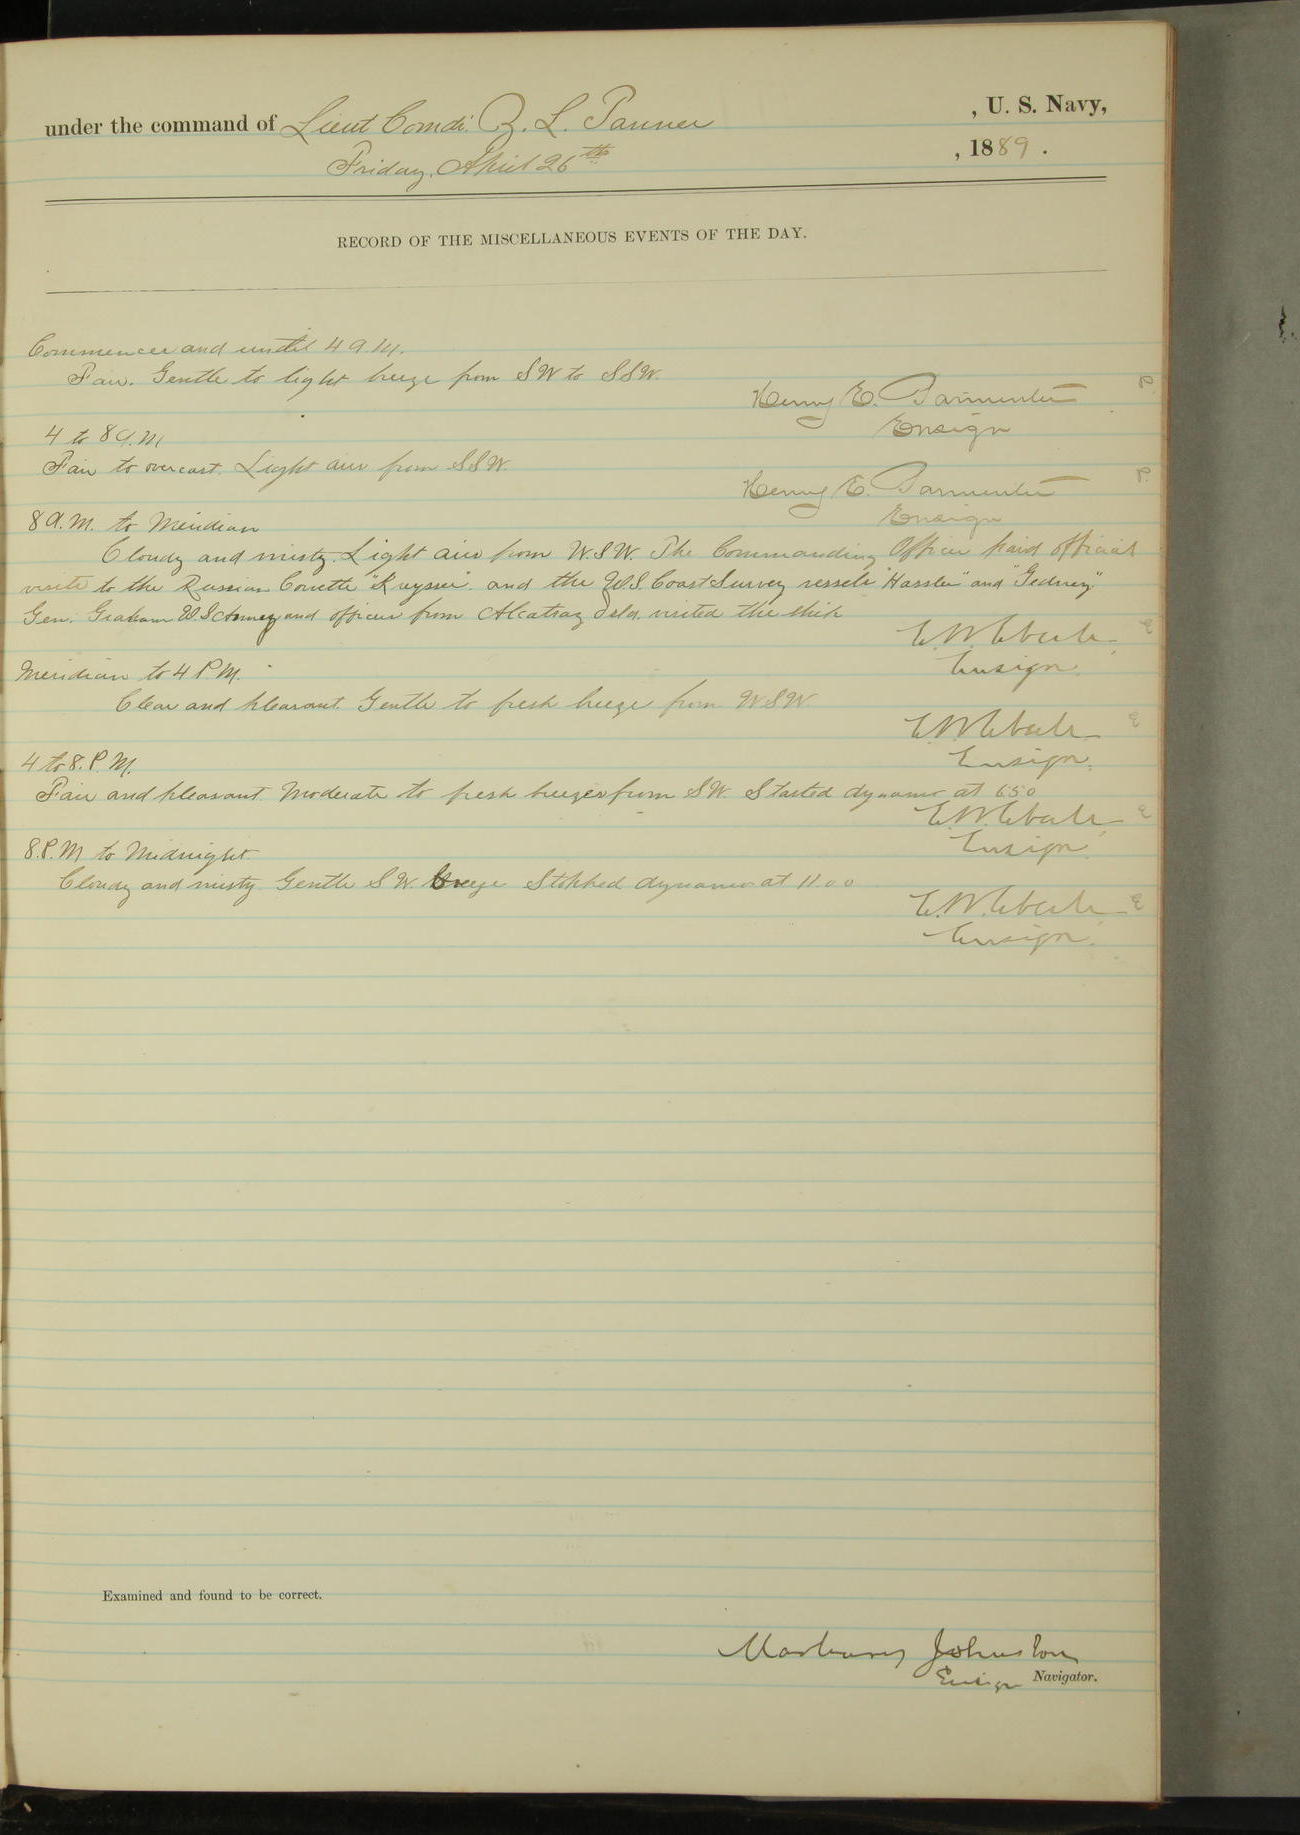 under the command of Lieut Comdr. Z. L. Tanner , U. S. Navy,
Friday, April 26th , 1889 .
RECORD OF THE MISCELLANEOUS EVENTS OF THE DAY.
Commences and until 4 A.M.
Fair. Gentle to light breeze from SW to SSW.
Henry E. Parmenter P.
Ensign
4 to 8 A.M
Fair to overcast. Light airs from SSW.
Henry E. Parmenter P.
Ensign
8 A.M. to Meridian
Cloudy and misty. Light airs from W.S.W. The Commanding Officer paid official
visits to the Russian Corvette "Kreyser" and the U.S. Coast Survey vessels "Hassler" and "Gedney"
Gen. Graham U.S. Army and officers from Alcatraz Isld. visited the ship
E. W. Eberle E
Ensign.
Meridian to 4 P.M.
Clear and pleasant. Gentle to fresh breeze from WSW
E. W. Eberle E
Ensign.
4 to 8. P. M.
Fair and pleasant. Moderate to fresh breezes from SW. Started dynamo at 6 50
E. W. Eberle E
Ensign
8. P. M to Midnight
Cloudy and misty Gentle S W. breeze Stopped dynamo at 11.00
E. W. Eberle E
Ensign.
Examined and found to be correct.
Marbury Johnston
Ensign Navigator.